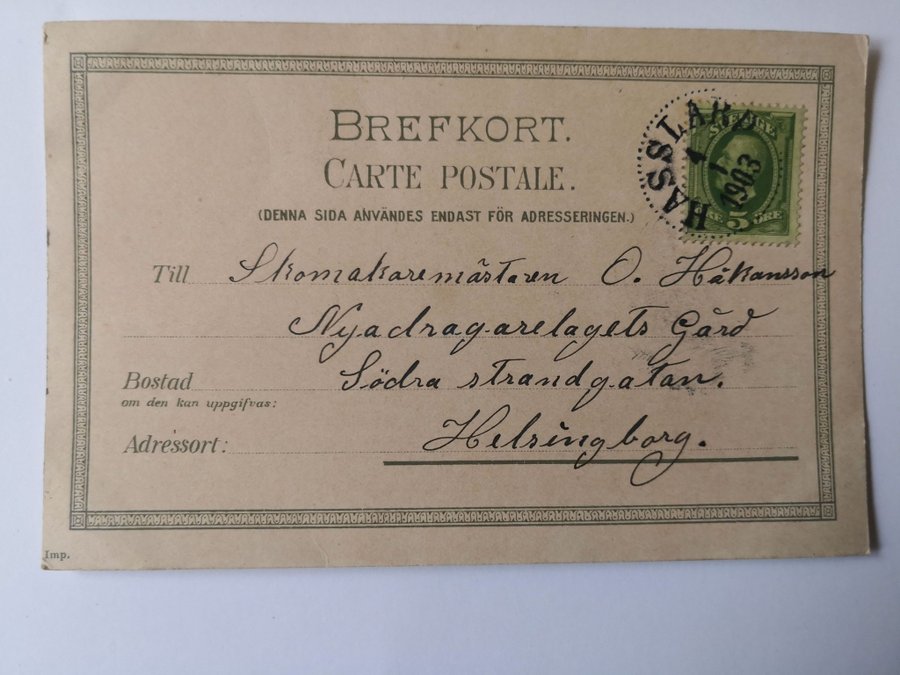 BREFKORT.
CARTE POSTALE.
(DENNA SIDA ANVÄNDES ENDAST FÖR ADRESSERINGEN.)
HASSLARP
4 1
1903
SVERIGE
5 ÖRE
Till Skomakaremästaren O. Håkansson
Nyadragarelagets Gård
Bostad Södra strandgatan.
om den kan uppgifvas:
Adressort: Helsingborg.
Imp.